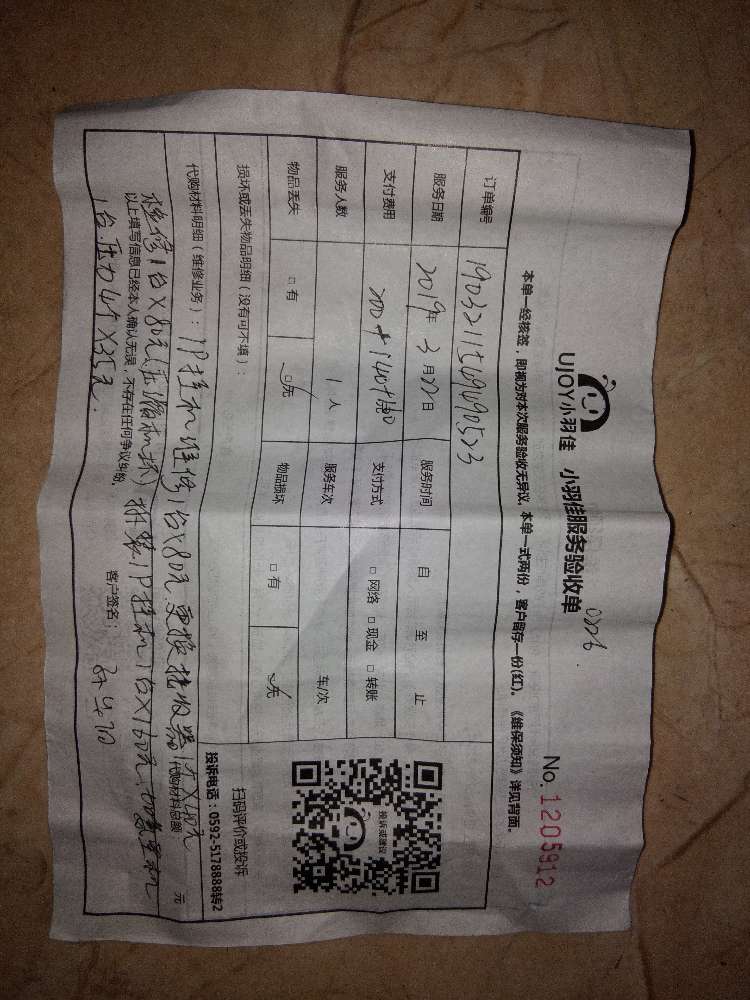 UJOY小羽佳 小羽佳服务验收单
No.1205912
本单一经核签，即视为对本次服务验收无异议，本单一式两份，客户留存一份(红)。《维保须知》详见背面。
订单编号
服务日期 2019年 3月22日 服务时间 自 至 止
支付费用 支付方式 □ 网络 □ 现金 □ 转账
服务人数 1 人 服务车次 车/次
物品丢失 □ 有 □ 无 物品损坏 □ 有 □ 无
损坏或丢失物品明细（没有可不填）：
投诉或建议
扫码评价或投诉
投诉电话：0592-5178888转2
代购材料明细（维修业务）：1P挂机维修1台X80元.更换接收器1个X140元
(代购材料总额 元
维修1台X80元(压缩机坏) 拆装1P挂机1台X160元.
以上填写信息已经本人确认无误，不存在任何争议纠纷。
客户签名：